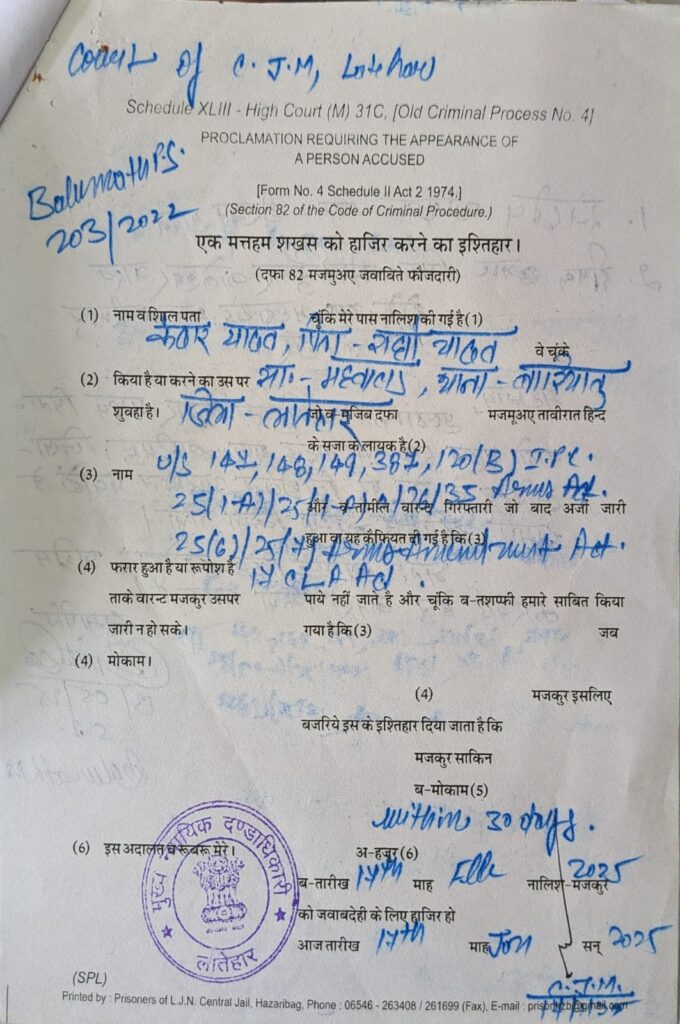 Court of C.J.M, Latehar
Schedule XLIII - High Court (M) 31C, [Old Criminal Process No. 4]
PROCLAMATION REQUIRING THE APPEARANCE OF
A PERSON ACCUSED
Balumath P.S.
203/2022
[Form No. 4 Schedule II Act 2 1974.]
(Section 82 of the Code of Criminal Procedure.)
एक मत्तहम शखस को हाजिर करने का इश्तिहार।
(दफा 82 मजमुअए जवाबिते फौजदारी)
(1) नाम व शिाल पता चूंकि मेरे पास नालिश की गई है (1)
यादव, पिता - यादव वे चूंके
(2) किया है या करने का उस पर ग्रा.- थाना -
शुवहा है। जिला - लातेहार जो व-मुजिब दफा मजमूअए तावीरात हिन्द
के सजा के लायक है (2)
(3) नाम U/S 147, 148, 149, 387, 120(B) I.P.C.
25(1-A)/25(1-A)A/26/35 Arms Act.
और व-तामील वारन्ट गिरफ्तारी जो बाद अर्जा जारी
हुआ वा यह कैफियत दी गई है कि (3)
25(6)/25(7) Arms Amendment Act.
(4) फरार हुआ है या रूपोश है 17 CLA Act.
ताके वारन्ट मजकुर उसपर पाये नहीं जाते है और चूंकि ब-तशफ्फी हमारे साबित किया
जारी न हो सके। गया है कि (3) जब
(4) मोकाम।
(4) मजकुर इसलिए
बजरिये इस के इश्तिहार दिया जाता है कि
मजकुर साकिन
ब-मोकाम (5)
within 30 days.
(6) इस अदालत व रूबरू मेरे। अ-हजूर (6)
ब-तारीख 17th माह नालिश-मजकुर 2025
को जवाबदेही के लिए हाजिर हो
आज तारीख 17th माह Jan सन् 2025
मुख्य न्यायिक दण्डाधिकारी
लातेहार
C.J.M.
(SPL)
Printed by : Prisoners of L.J.N. Central Jail, Hazaribag, Phone : 06546 - 263408 / 261699 (Fax), E-mail :